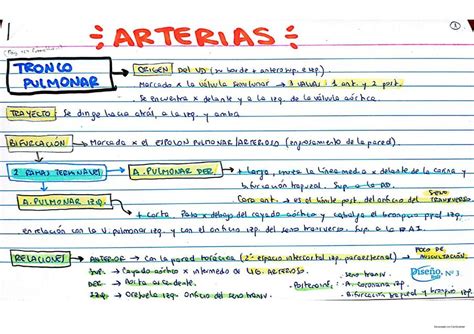 ①
ARTERIAS
TRONCO PULMONAR
ORIGEN Del VD (x borde + anterosup. e izq.)
Marcado x la válvula semilunar → 3 VALVAS: 1 ant. y 2 post.
Se encuentra x delante y a la izq. de la válvula aórtica.
TRAYECTO Se dirige hacia atrás, a la izq. y arriba
BIFURCACIÓN → Marcado x el ESPOLÓN PULMONAR/ARTERIOSO (engrosamiento de la pared).
2 RAMAS TERMINALES → A. PULMONAR DER. → + Larga, hasta la línea media x delante de la carina y
bifurcación traqueal. Sup. a la AD.
Cara ant. → es el límite post. del orificio del SENO TRANSVERSO.
A. PULMONAR IZQ. → + corta. Pasa x debajo del cayado aórtico y cabalga el bronquio ppal izq.
en relación con la V. pulmonar izq. y con el orificio izq. del seno transverso. Sup. a la OAI.
RELACIONES → ANTERIOR → Con la pared torácica (2° espacio intercostal izq. paraesternal) → FOCO DE AUSCULTACIÓN.
SUP. → Cayado aórtico x intermedio de LIG. ARTERIOSO.
DER → Aorta ascendente.
IZQ. → Orejuela izq. Orificio del seno transv.
Posterior: Seno transv.
A. Coronaria izq.
Bifurcación traqueal y bronquio izq.
Diseño N° 3